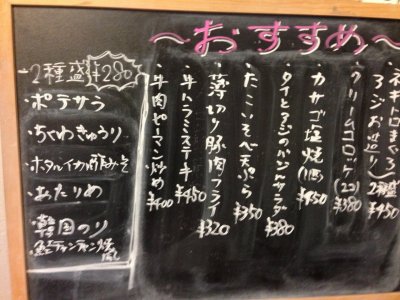 〜おすすめ〜
ネギトロまぐろ
アジお造り 2種盛 ¥450
クリームコロッケ(2コ) ¥380
カサゴ塩焼(1尾) ¥450
タイとアジのパン サラダ ¥380
たこいそべ天ぷら ¥350
薄切り豚肉フライ ¥320
牛ハラミステーキ ¥450
牛肉ピーマン炒め ¥400
2種盛¥280
・ポテサラ
・ちくわきゅうり
・ホタルイカ酢みそ
・あたりめ
・韓国のり
・鮭チャンチャン焼風